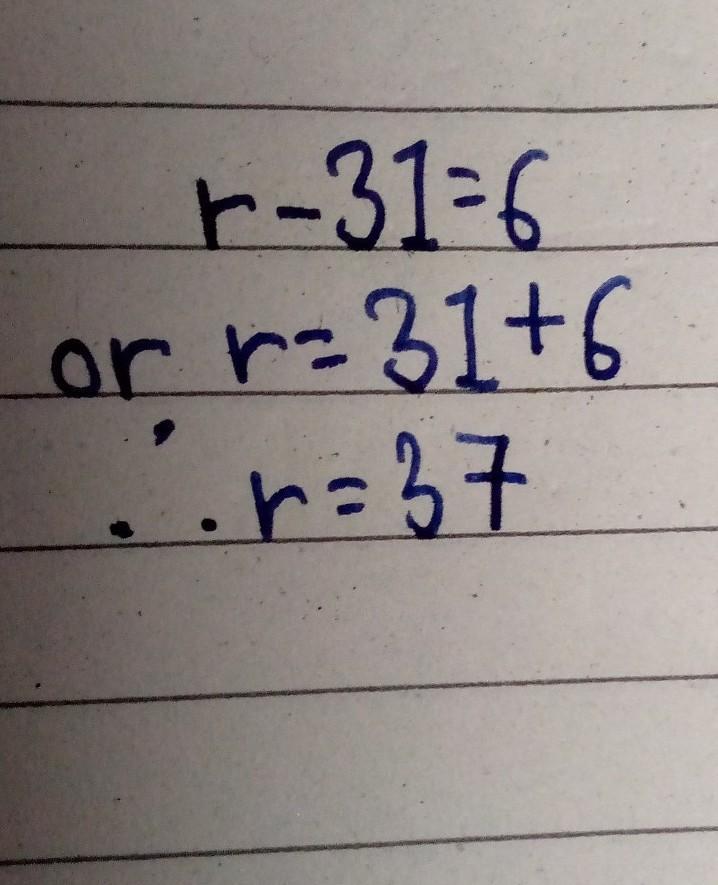 r-31=6
or r=31+6
∴ r=37